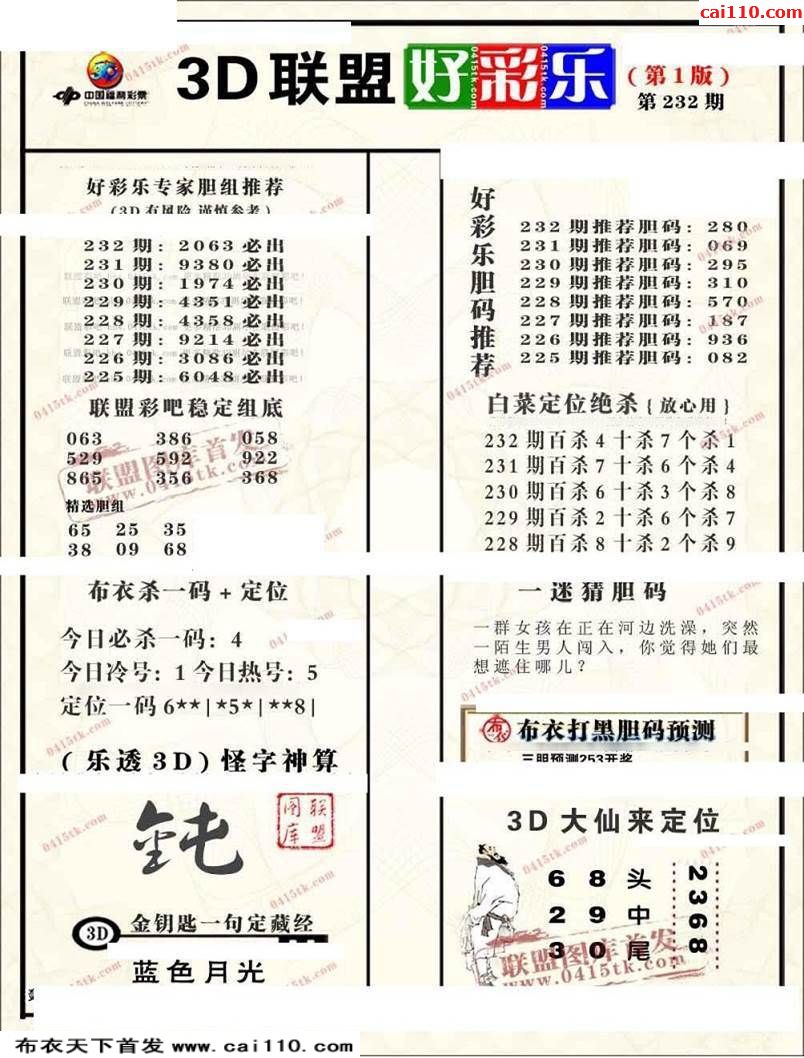 cai110.com
中国福利彩票
CHINA WELFARE LOTTERY
3D联盟好彩乐
(第1版)
第232期
好彩乐专家胆组推荐
(3D有风险 谨慎参考)
232期:2063必出
231期:9380必出
230期:1974必出
229期:4351必出
228期:4358必出
227期:9214必出
226期:3086必出
225期:6048必出
联盟彩吧稳定组底
063 386 058
529 592 922
865 356 368
精选胆组
65 25 35
38 09 68
布衣杀一码+定位
今日必杀一码:4
今日冷号:1今日热号:5
定位一码6**|*5*|**8|
(乐透3D)怪字神算
联盟图库
3D
金钥匙一句定藏经
蓝色月光
好彩乐胆码推荐
232期推荐胆码:280
231期推荐胆码:069
230期推荐胆码:295
229期推荐胆码:310
228期推荐胆码:570
227期推荐胆码:187
226期推荐胆码:936
225期推荐胆码:082
白菜定位绝杀{放心用}
232期百杀4十杀7个杀1
231期百杀7十杀6个杀4
230期百杀6十杀3个杀8
229期百杀2十杀6个杀7
228期百杀8十杀2个杀9
一迷猜胆码
一群女孩在正在河边洗澡,突然
一陌生男人闯入,你觉得她们最
想遮住哪儿?
布衣打黑胆码预测
三胆预测253开奖
3D大仙来定位
6 8 头
2 9 中
3 0 尾
2368
联盟图库首发
www.0415tk.com
布衣天下首发 www.cai110.com